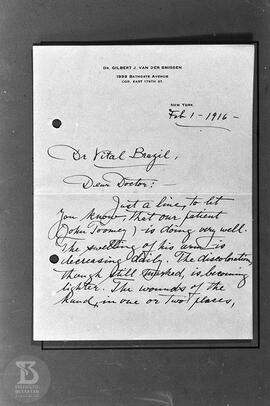 DR. GILBERT J. VAN DER SMISSEN
1933 BATHGATE AVENUE
COR. EAST 178TH ST.
NEW YORK,
Feb 1 - 1916 -
Dr Vital Brazil,
Dear Doctor: -
Just a line, to let
you know, that our patient
(John Toomey) is doing very well.
The swelling of his arm is
decreasing daily. The discoloration,
though still marked, is becoming
lighter. The wounds of the
hand, in one or two places,
INSTITUTO
BUTANTAN